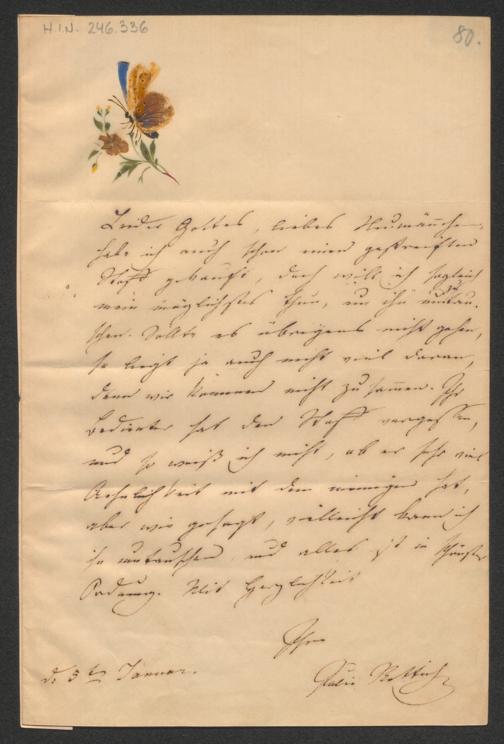 H.I.N. 246.336
80.
Leider Gottes, liebes Neumännchen,
habe ich auch schon einen gestreiften
Stoff gekauft, doch will ich sogleich
mein möglichstes thun, um ihn umtau-
schen. Sollte es übrigens nicht gehen,
so liegt ja auch nicht viel daran,
denn wir kommen nicht zusammen. Ihr
Bedienter hat den Stoff vergessen,
und so weiß ich nicht, ob er sehr viel
Aehnlichkeit mit dem meinigen hat,
aber wie gesagt, vielleicht kann ich
ihn umtauschen, und alles ist in schönster
Ordnung. Mit Herzlichkeit
Ihre
d. 5ten Januar.
Julie Rettich